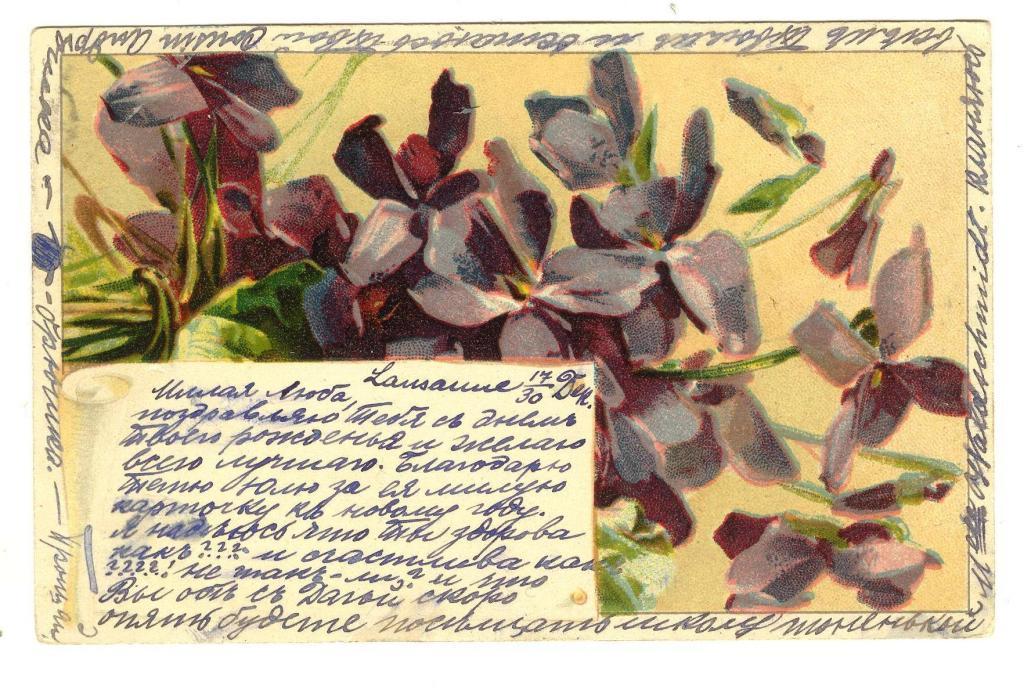 Lausanne 17/30 Дек.
Милая Люба,
поздравляю Тебя съ днемъ
твоего рожденья и желаю
всего лучшаго. Благодарю
тетю Юлю за ея милую
карточку къ новому году.
Я надѣюсь что ты здорова
какъ ??? и счастлива как
????! не такъ-ли? и что
Вы обѣ съ Дагой скоро
опять будете посѣщать школу тоненькой
Waldschmidt.
твой Cousin Андр